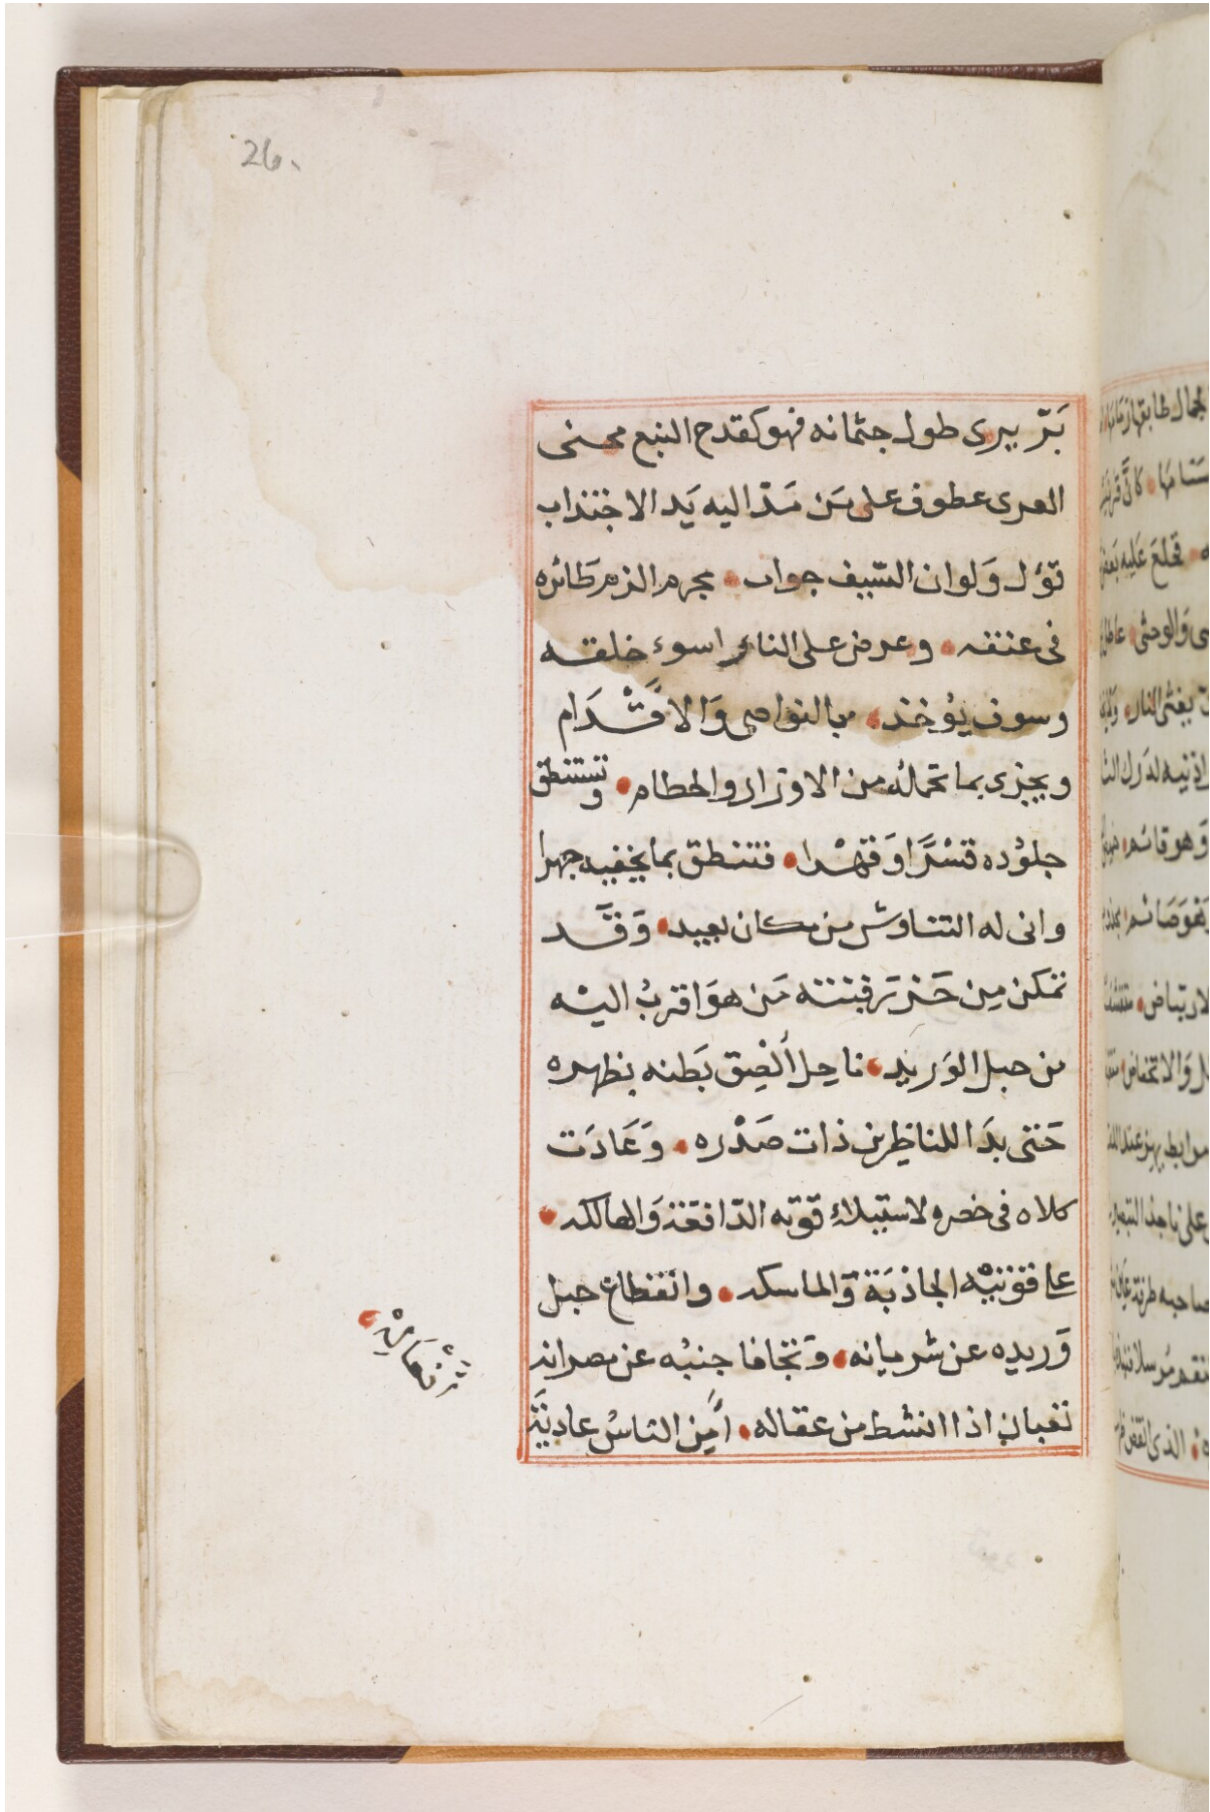 26
بَرّ يبرى طول جثمانه فهو كقدح النبع محنى
العرى عطوف على مَن مَدّ اليه يَد الاجتذاب
قؤل وَلو ان السّيف جواب مجرم الزم طَائره
فى عنقه وعرض على النار اسوء خلقه
وسوف يوُخذ بالنواصى وَالاَقْدَام
ويجزى بما تحمله من الاوزار والحطام وتستنطق
جلوُده قسْرًا وَقهْرا فتنطق بما يخفيه جهرا
وانى له التناوش من مكان بعيد وَقَد
تمكن مِن حَز رَقبته مَن هوَ اقربُ اليْه
من حبل الوَريد ناحِل اُلْصِق بَطنه بظهره
حَتى بدَا للناظِرين ذات صَدْره وَعَادَت
كلاه فى خصره لاستيلاءِ قوّته الدّافقة وَالهالكه
على قوتيْه الجاذبَة وَالماسكه وانقطاع حبل
وَريده عن شريانه وَتجافا جنبُه عن مصرانه
ثعبان اذا انشط من عقاله اَمِن الناسُ عاديَةَ